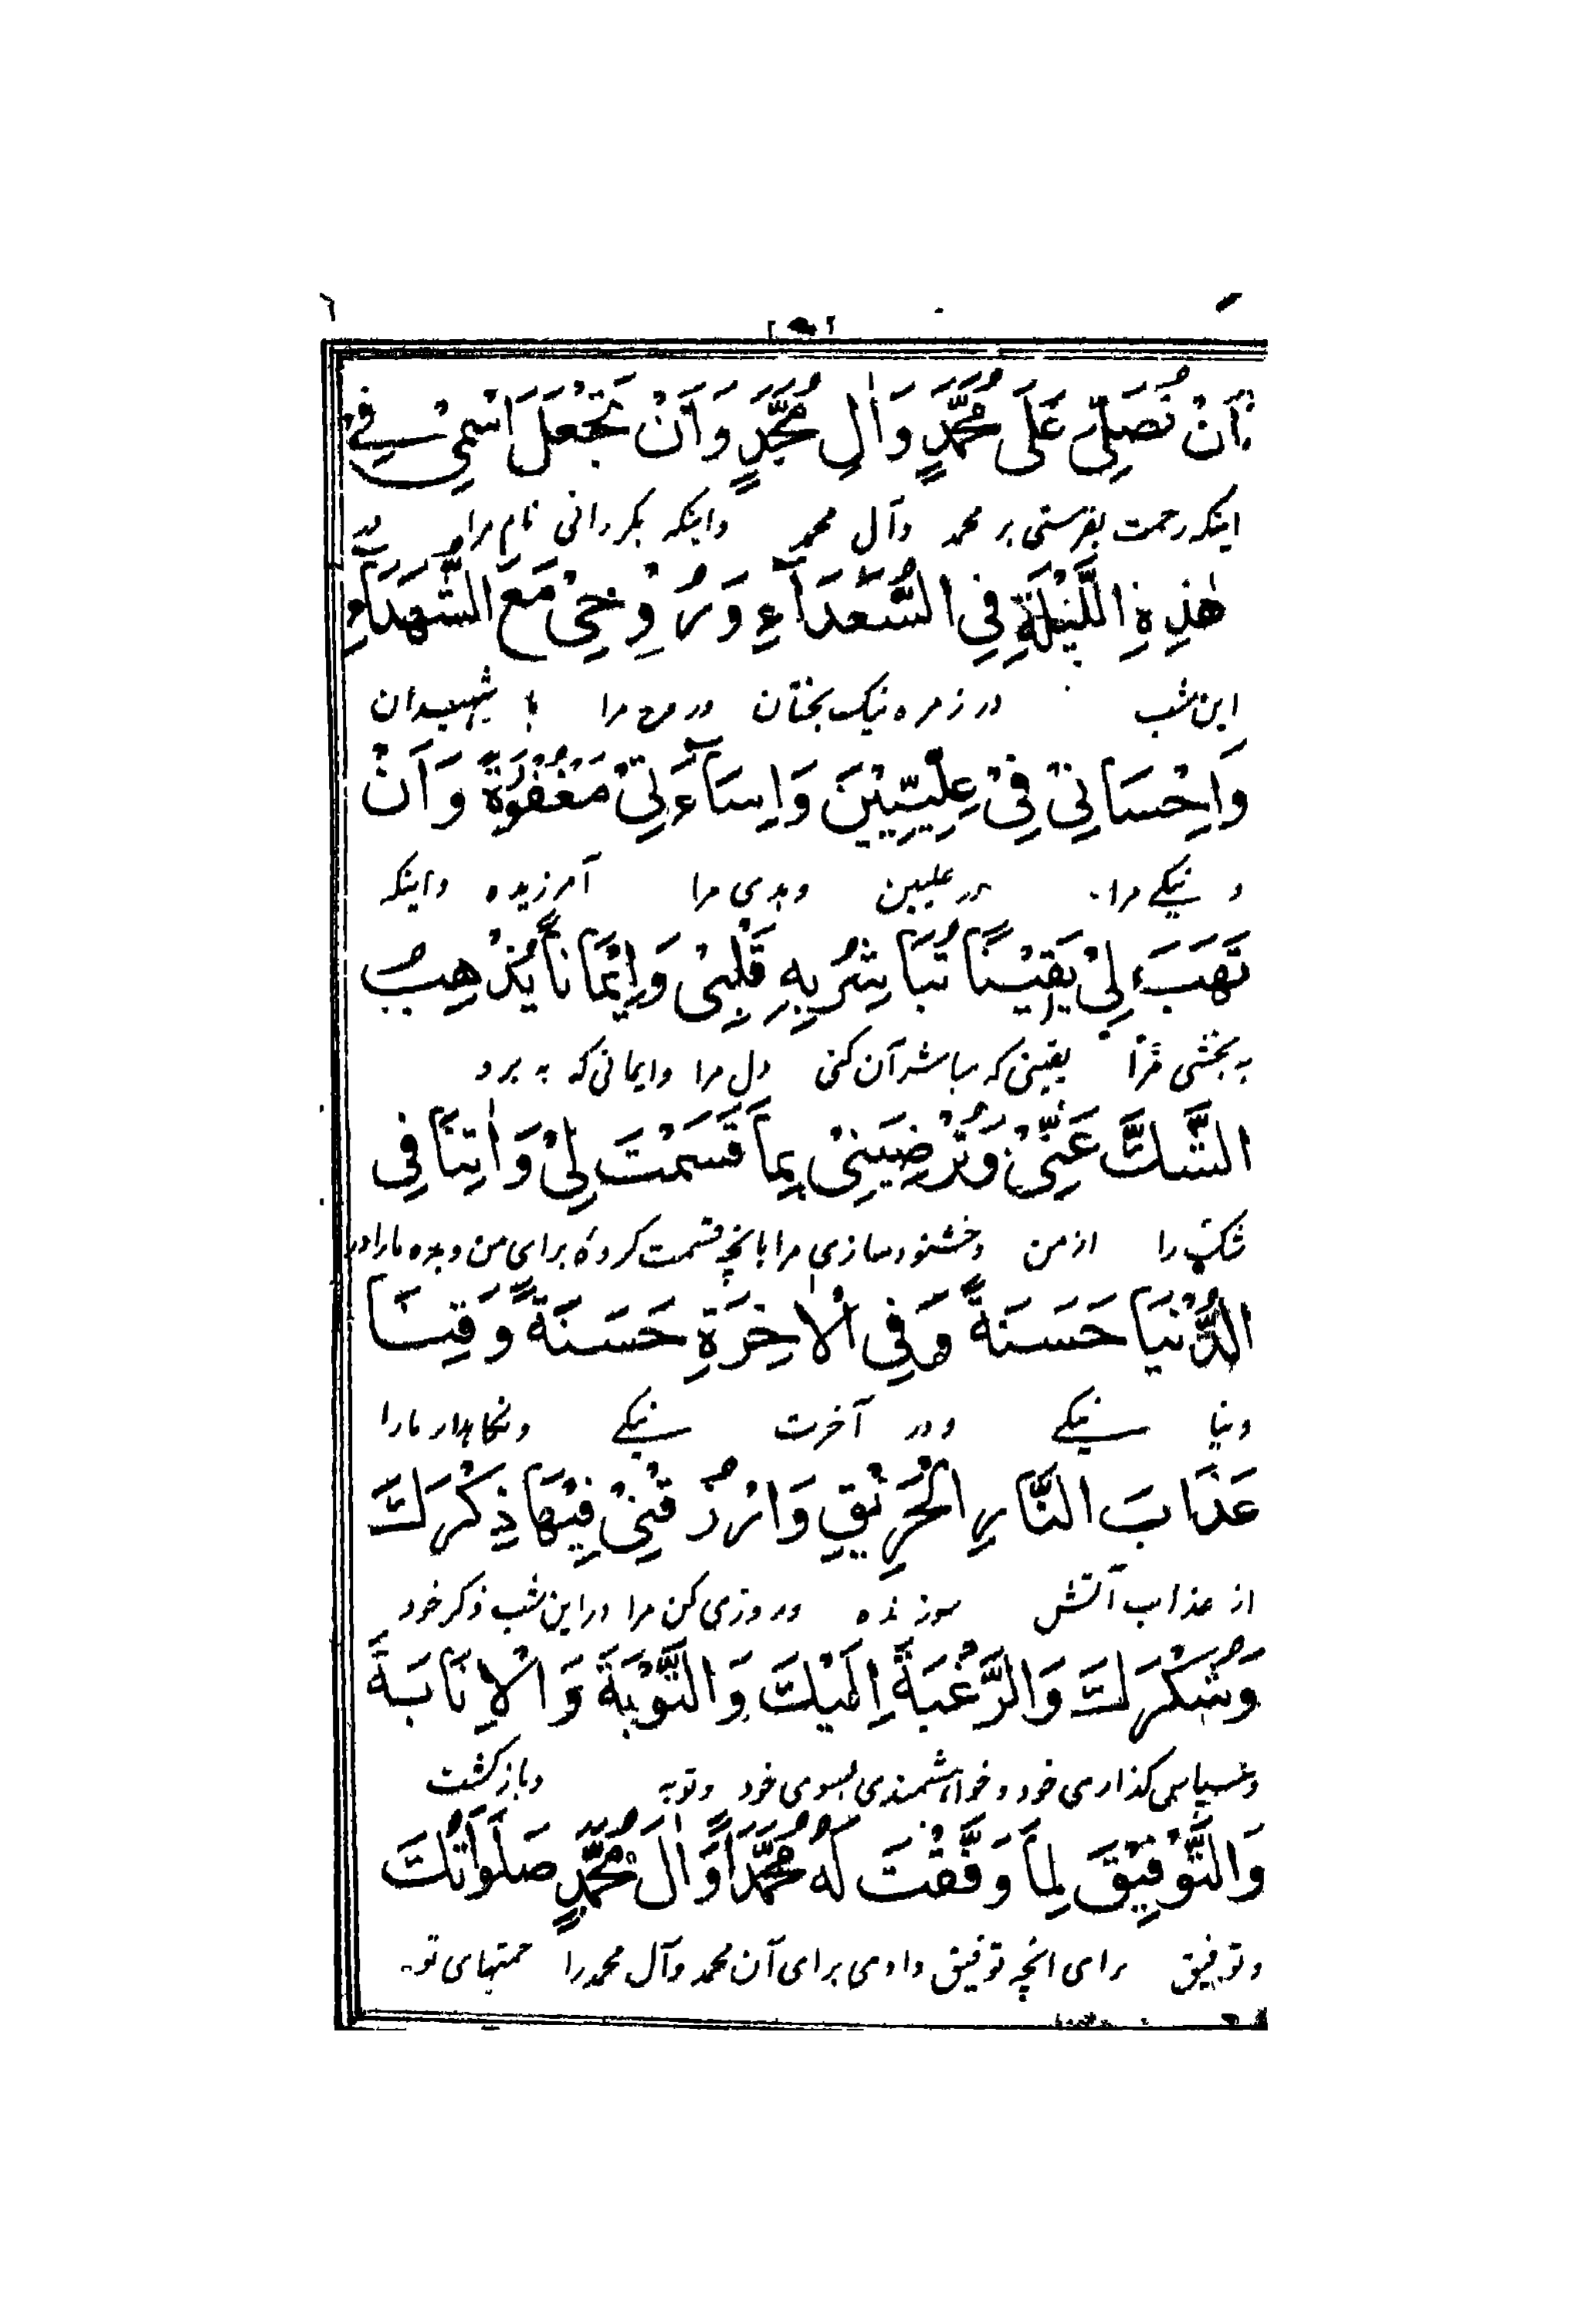 اَنْ تُصَلِّیَ عَلٰی مُحَمَّدٍ وَاٰلِ مُحَمَّدٍ وَاَنْ تَجْعَلَ اسْمِیْ فِیْ
اینکه رحمت بفرستی بر محمد وآل محمد واینکه بگردانی نام مرا در
هٰذِهِ اللَّیْلَةِ فِی السُّعَدَآءِ وَرُوْحِیْ مَعَ الشُّهَدَآءِ
این شب در زمره نیک بختان وروح مرا با شهیدان
وَاِحْسَانِیْ فِیْ عِلِّیِّیْنَ وَاِسَآءَتِیْ مَغْفُوْرَةً وَاَنْ
و نیکے مرا در علیین وبدی مرا آمرزیده واینکه
تَهَبَ لِیْ یَقِیْنًا تُبَاشِرُ بِهِ قَلْبِیْ وَاِیْمَانًا یُذْهِبُ
به بخشی مرا یقینی که مباشر آن کنی دل مرا وایمانی که به برد
الشَّكَّ عَنِّیْ وَتُرْضِیَنِیْ بِمَا قَسَمْتَ لِیْ وَاٰتِنَا فِی
شک را از من وخشنود سازی مرا بانچه قسمت کردهٔ برای من وبده مارا در
الدُّنْیَا حَسَنَةً وَفِی الْاٰخِرَةِ حَسَنَةً وَقِنَا
دنیا نیکے ودر آخرت نیکے ونگاهدار مارا
عَذَابَ النَّارِ الْحَرِیْقِ وَارْزُقْنِیْ فِیْهَا ذِكْرَكَ
از عذاب آتش سوزنده وروزی کن مرا دراین شب ذکر خود
وَشُكْرَكَ وَالرَّغْبَةَ اِلَیْكَ وَالتَّوْبَةَ وَالْاِنَابَةَ
وسپاس گذاری خود وخواهشمندی بسوی خود وتوبه وبازگشت
وَالتَّوْفِیْقَ لِمَا وَفَّقْتَ لَهُ مُحَمَّدًا وَّاٰلَ مُحَمَّدٍ صَلَوَاتُكَ
وتوفیق برای انچه توفیق دادی برای آن محمد وآل محمد را رحمتهای تو